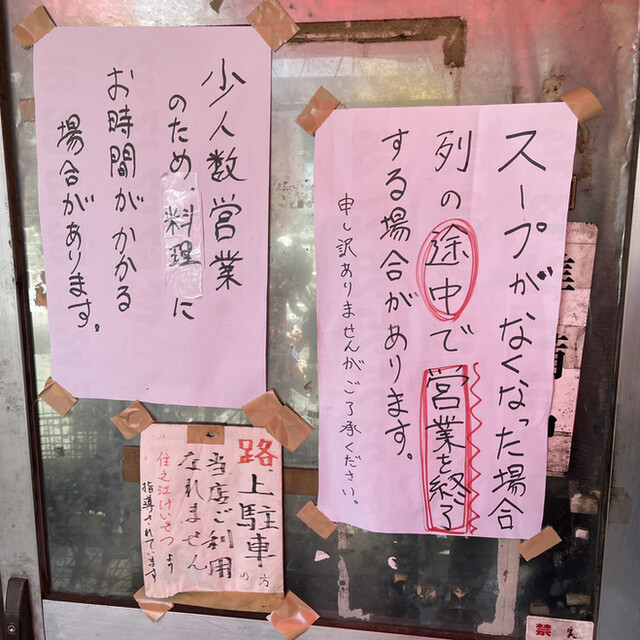 スープがなくなった場合
列の途中で営業を終了
する場合があります。
申し訳ありませんがご了承ください。
少人数営業
のため、料理に
お時間がかかる
場合があります。
路上駐車の方
当店ご利用
なれません
住之江けいさつより
指導されてます
禁